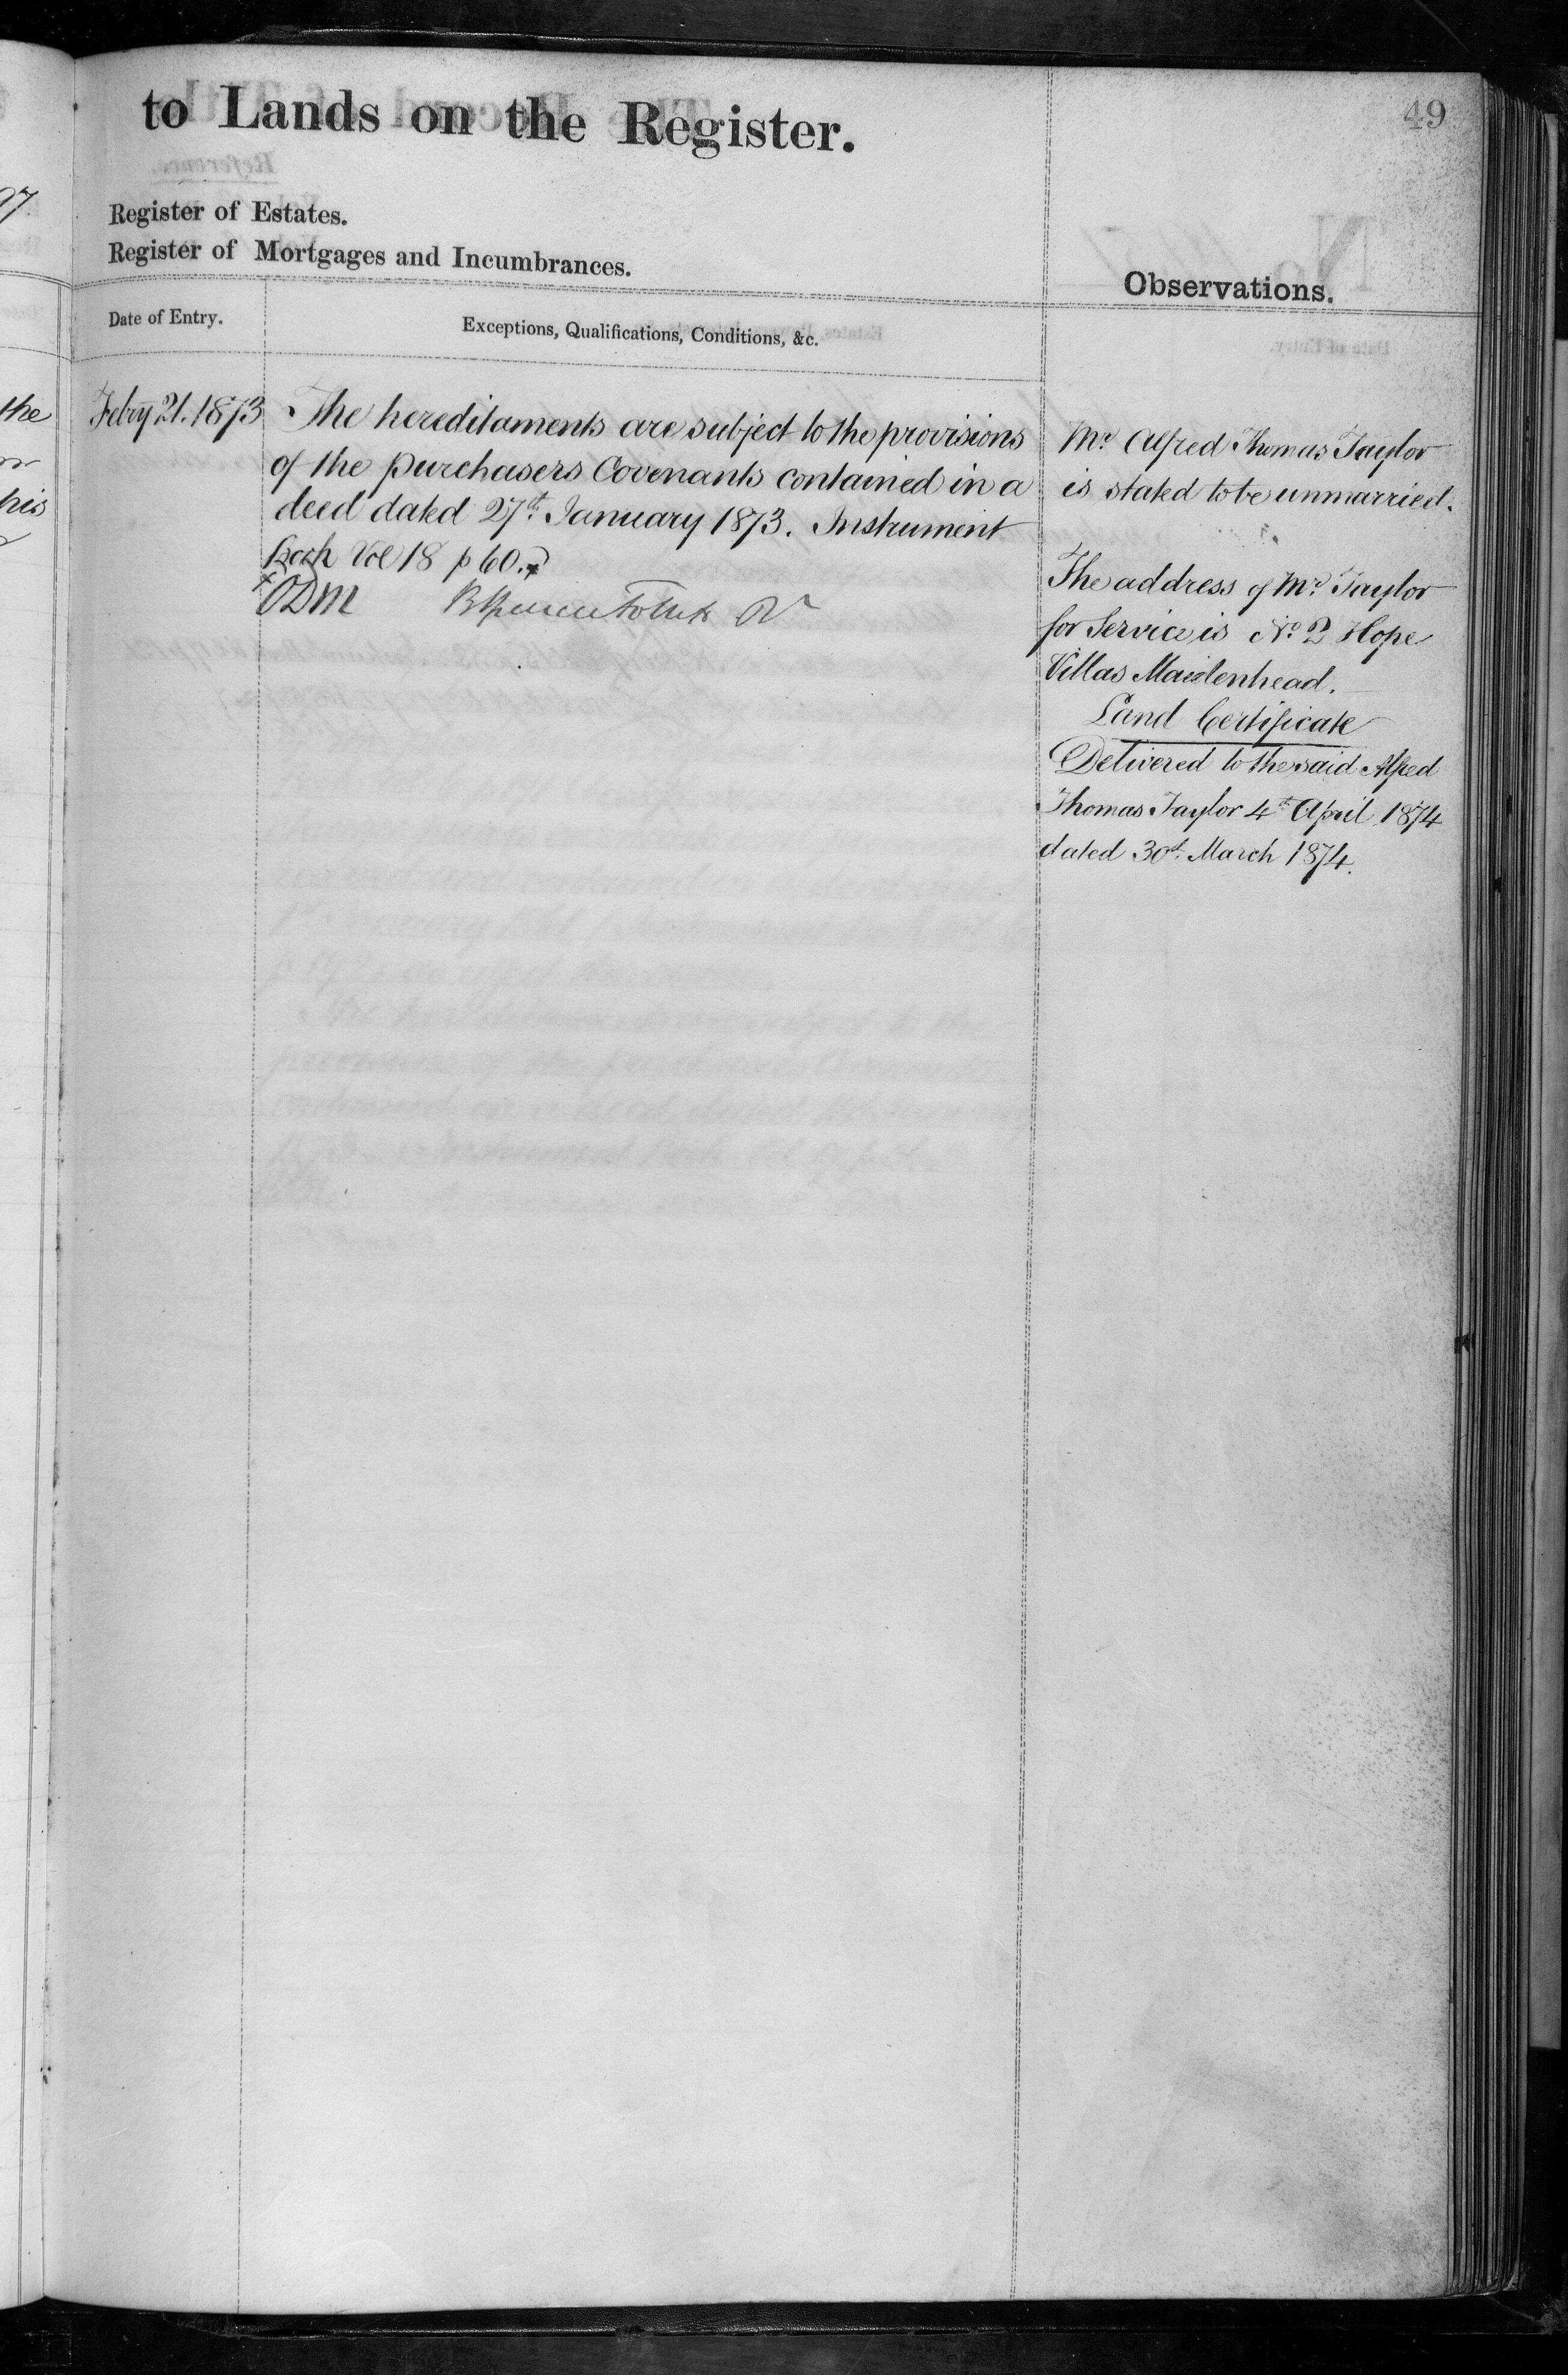 to Lands on the Register.
49
Register of Estates.
Register of Mortgages and Incumbrances.
Observations.
Date of Entry.
Exceptions, Qualifications, Conditions, &c.
Febry 21. 1873
The hereditaments are subject to the provisions
of the purchasers Covenants contained in a
deed dated 27th January 1873. Instrument
book Vol 18 p 60.
ODM
Mr Alfred Thomas Taylor
is stated to be unmarried.
The address of Mr Taylor
for Service is No 2 Hope
Villas Maidenhead.
Land Certificate
Delivered to the said Alfred
Thomas Taylor 4th April 1874
dated 30th March 1874.
the
his